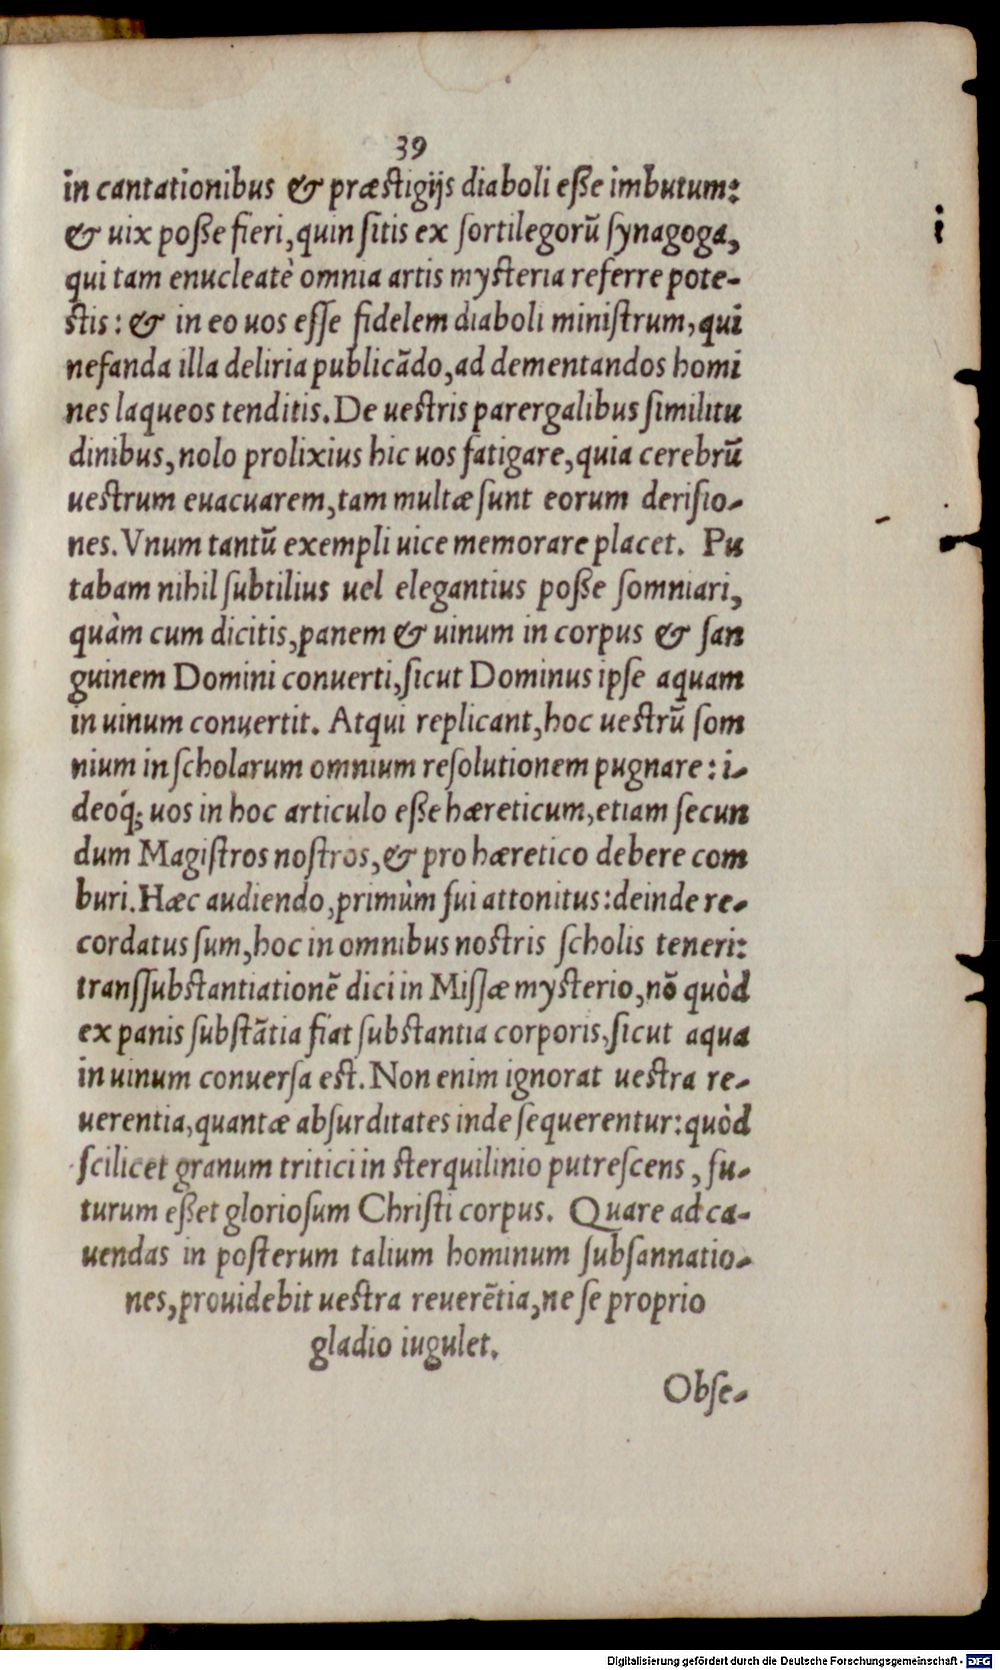 39
in cantationibus & præstigijs diaboli eſſe imbutum:
& uix poſſe fieri, quin ſitis ex ſortilegorū ſynagoga,
qui tam enucleatè omnia artis myſteria referre pote-
ſtis: & in eo uos eſſe fidelem diaboli miniſtrum, qui
nefanda illa deliria publicādo, ad dementandos homi
nes laqueos tenditis. De ueſtris parergalibus ſimilitu
dinibus, nolo prolixius hic uos fatigare, quia cerebrū
ueſtrum euacuarem, tam multæ ſunt eorum deriſio-
nes. Vnum tantū exempli uice memorare placet. Pu
tabam nihil ſubtilius uel elegantius poſſe ſomniari,
quàm cum dicitis, panem & uinum in corpus & ſan
guinem Domini conuerti, ſicut Dominus ipſe aquam
in uinum conuertit. Atqui replicant, hoc ueſtrū ſom
nium in ſcholarum omnium reſolutionem pugnare: i-
deoq́; uos in hoc articulo eſſe hæreticum, etiam ſecun
dum Magiſtros noſtros, & pro hæretico debere com
buri. Hæc audiendo, primùm fui attonitus: deinde re-
cordatus ſum, hoc in omnibus noſtris ſcholis teneri:
tranſſubſtantiationē dici in Miſſæ myſterio, nō quòd
ex panis ſubſtātia fiat ſubſtantia corporis, ſicut aqua
in uinum conuerſa eſt. Non enim ignorat ueſtra re-
uerentia, quantæ abſurditates inde ſequerentur: quòd
ſcilicet granum tritici in ſterquilinio putreſcens, fu-
turum eſſet glorioſum Chriſti corpus. Quare ad ca-
uendas in poſterum talium hominum ſubſannatio-
nes, prouidebit ueſtra reuerētia, ne ſe proprio
gladio iugulet.
Obſe-
Digitalisierung gefördert durch die Deutsche Forschungsgemeinschaft - DFG